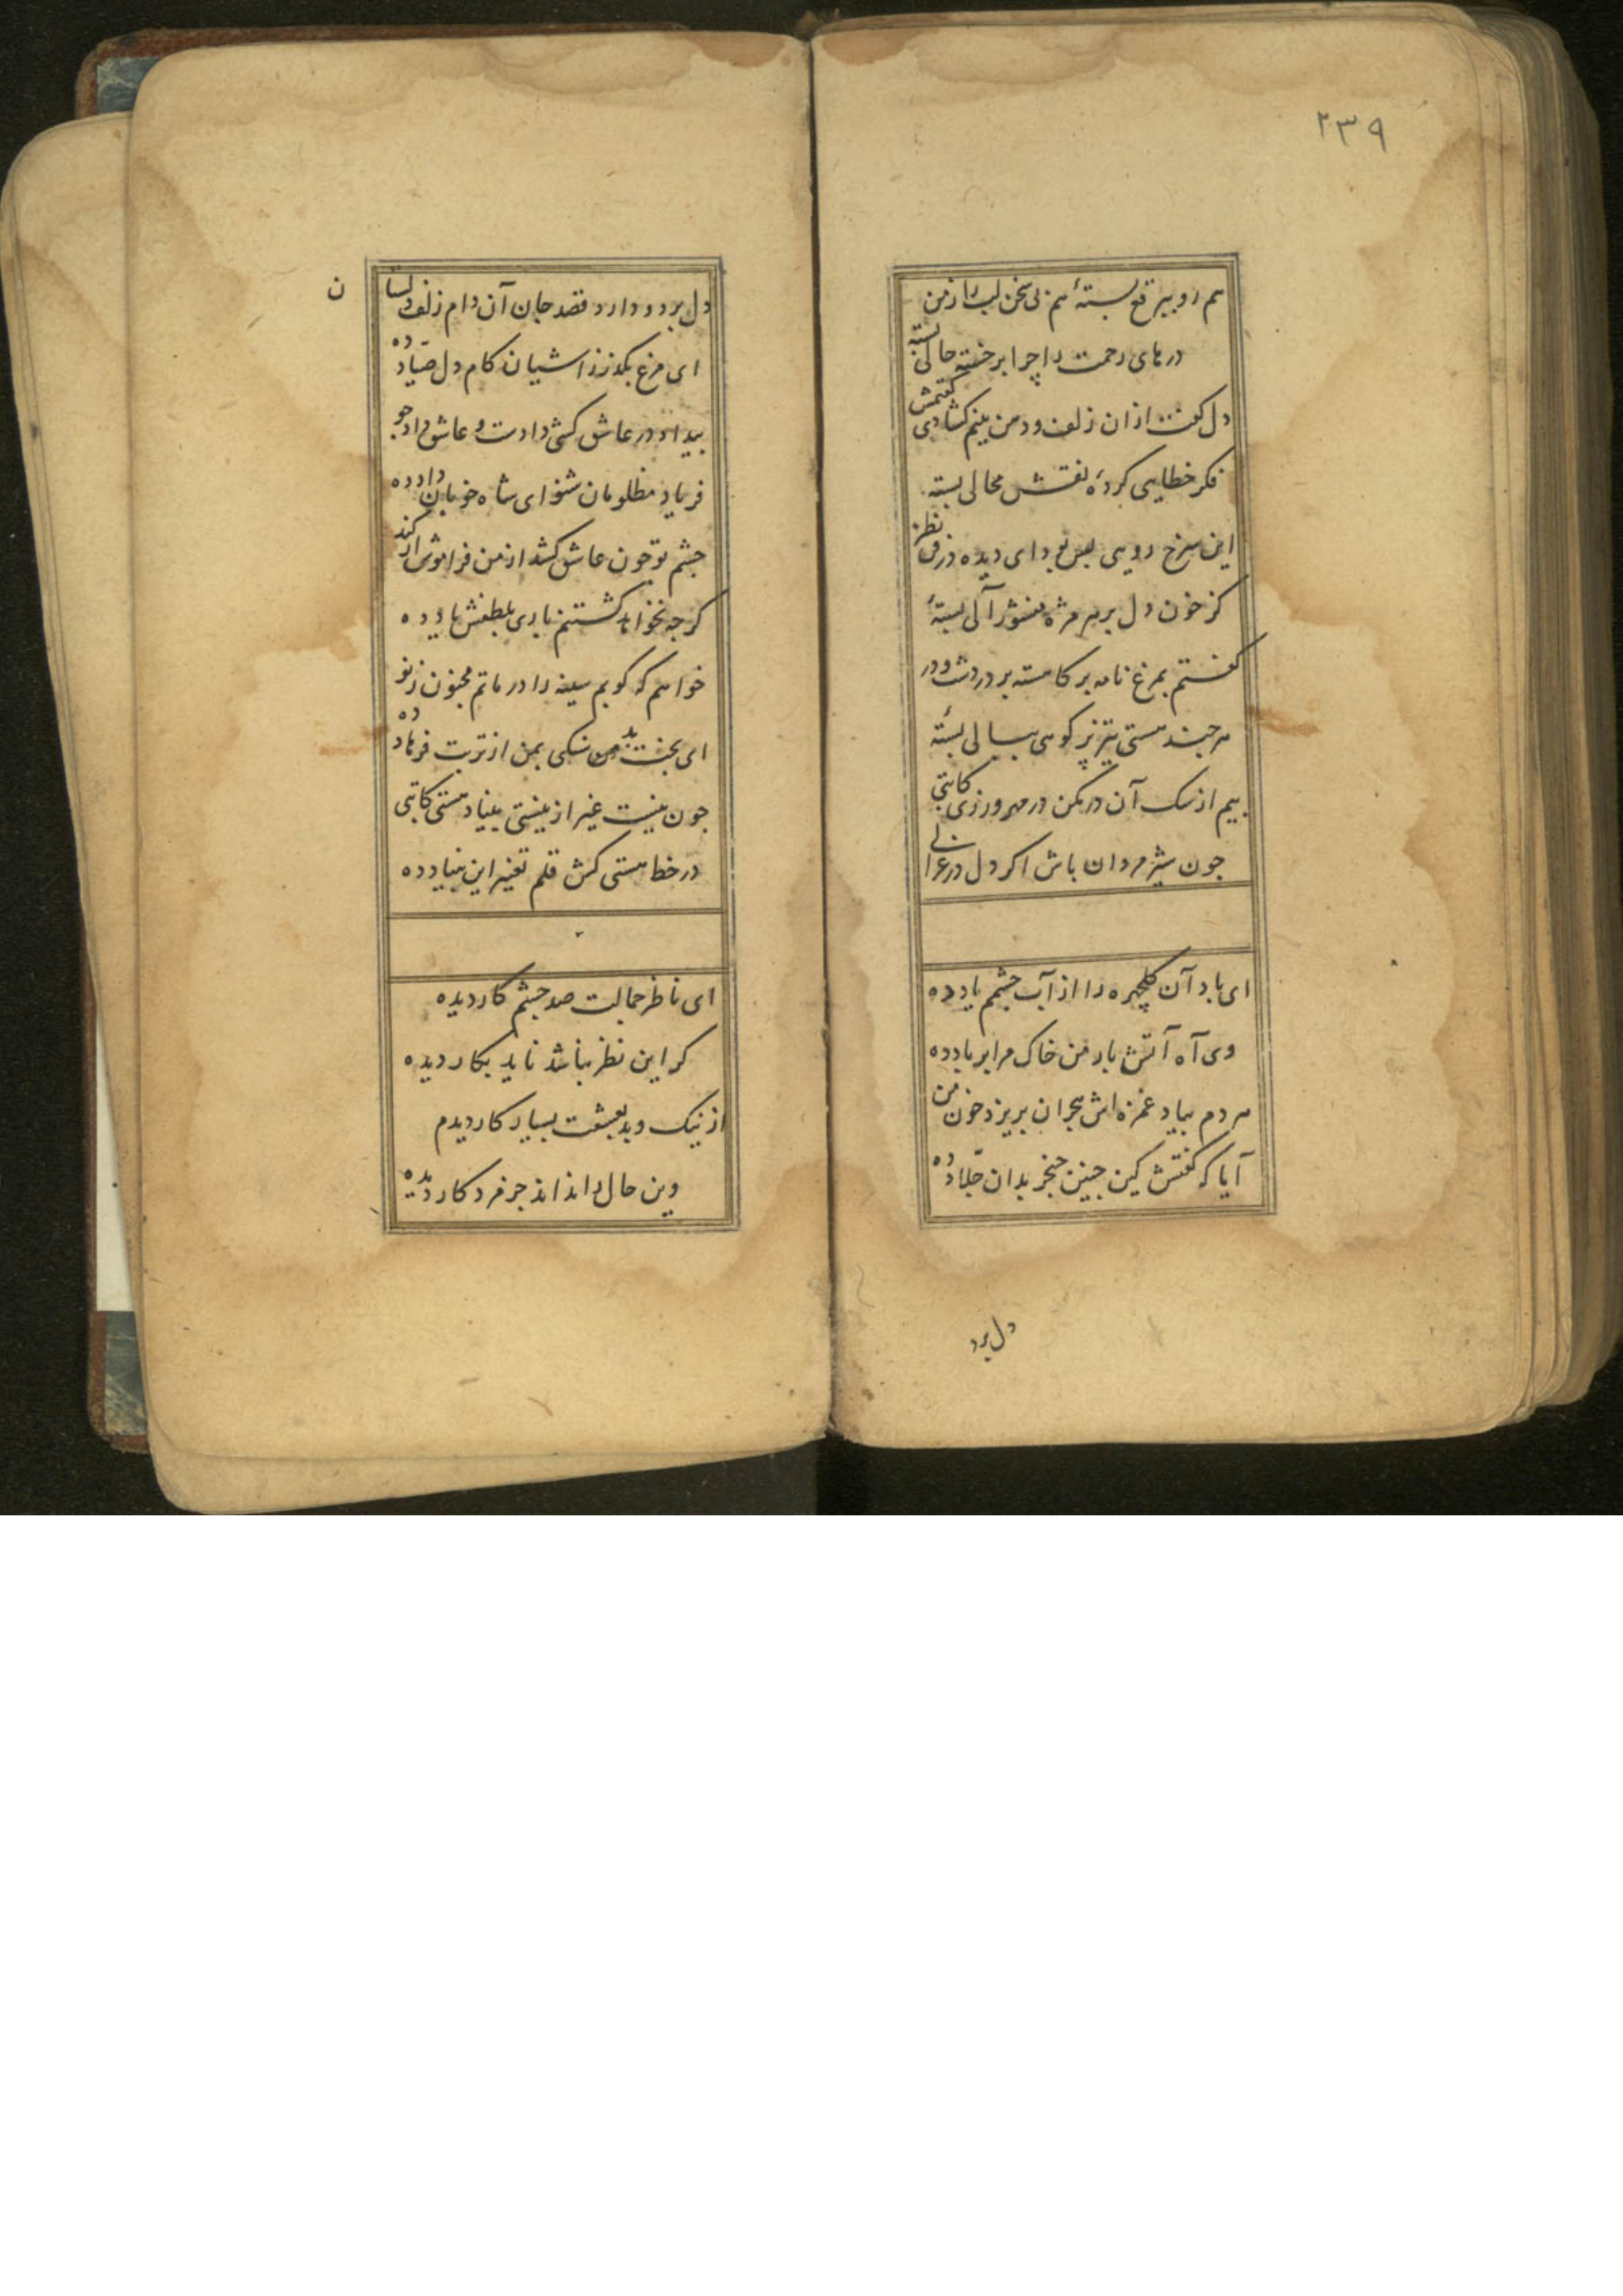 ۲۳۹
هم رو ببرقع بستهٔ هم زی سخن لب را ز من
درهای رحمت را چرا بر خسته حالی بسته
دل کفت از ان زلف ودمن بینم کشادی کفتمش
فکر خطایی کردهٔ نقش محالی بسته
این سرخ رویی بس بود ای دیده در نظر
کز خون دل بر سر مژه منشور آلی بستهٔ
کفتم بمرغ نامه بر کاهسته بر در دشت ودر
هر چند هستی تیزپر کوهی ببالی بستهٔ
بیم از سک آن در مکن در مهرورزی کاتبی
چون شیر مردان باش اکر دل در غزالی
ای باد آن کلچهره را از آب چشمم یاد ده
وی آه آتش بار من خاک مرا بر باد ده
هر دم بیاد غمزه اش هجران بریزد خون من
آیا که کفتش کین چنین خنجر بدان جلّاد ده
دل برد
دل برد و دارد قصد جان آن دام زلف دلستان
ای مرغ بکذر ز اشیان کام دل صیّاد ده
بیداد در عاشق کشی دادت و عاشق داد جو
فریاد مظلومان شنو ای شاه خوبان داد ده
چشم تو چون عاشق کشد از من فراموش ار کند
کرچه نخواهد کشتنم باری بلطفش یاد ده
خواهم که کوبم سینه را در ماتم مجنون ز نو
ای بخت بد من سنکی بمن از تربت فرهاد ده
چون نیست غیر از نیستی بنیاد هستی کاتبی
در خط هستی کش قلم تغییر این بنیاد ده
ای ناظر جمالت صد چشم کار دیده
کر این نظر نباشد ناید بکار دیده
از نیک و بد بعشقت بسیار کار دیدم
وین حال داند اند جز مرد کار دیده